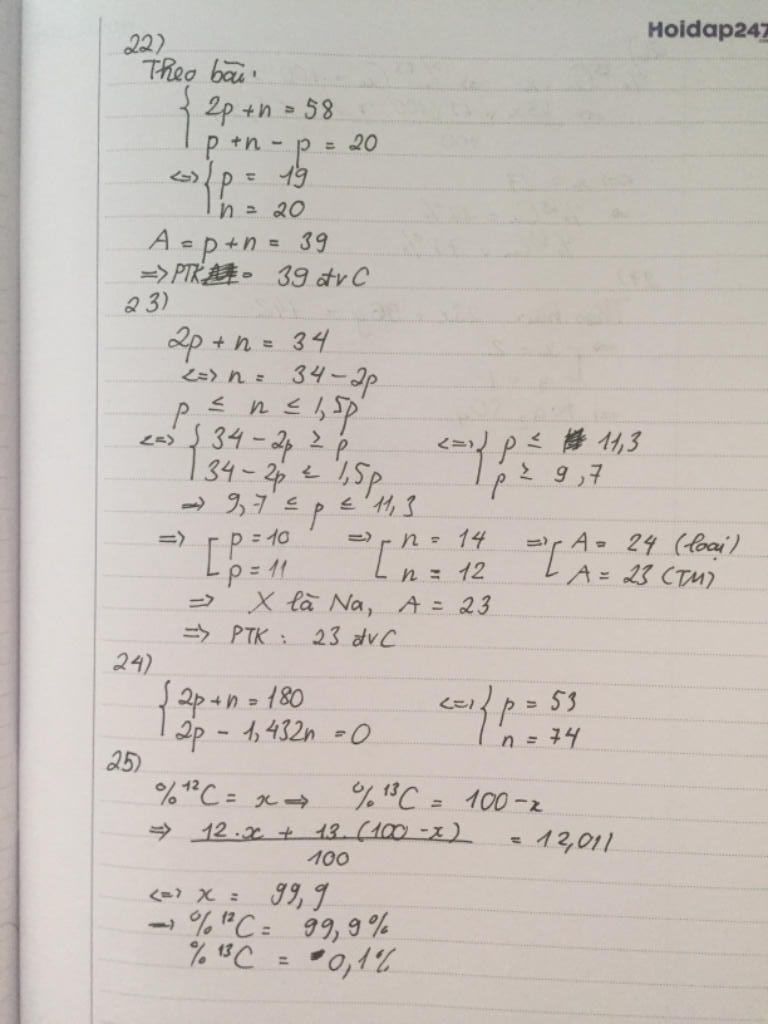 Hoidap247
22)
Theo bài.
{ 2p + n = 58
p + n - p = 20
<=> { p = 19
n = 20
A = p + n = 39
=> PTK = 39 đvC
23)
2p + n = 34
<=> n = 34 - 2p
p ≤ n ≤ 1,5p
<=> { 34 - 2p ≥ p <=> { p ≤ 11,3
34 - 2p ≤ 1,5p p ≥ 9,7
=> 9,7 ≤ p ≤ 11,3
=> [ p = 10 => [ n = 14 => [ A = 24 (loại)
p = 11 n = 12 A = 23 (TM)
=> X là Na, A = 23
=> PTK : 23 đvC
24)
{ 2p + n = 180 <=> { p = 53
2p - 1,432n = 0 n = 74
25)
% ¹²C = x => % ¹³C = 100 - x
=> 12 . x + 13 . (100 - x) = 12,011
100
<=> x = 99,9
→ % ¹²C = 99,9%
% ¹³C = 0,1%